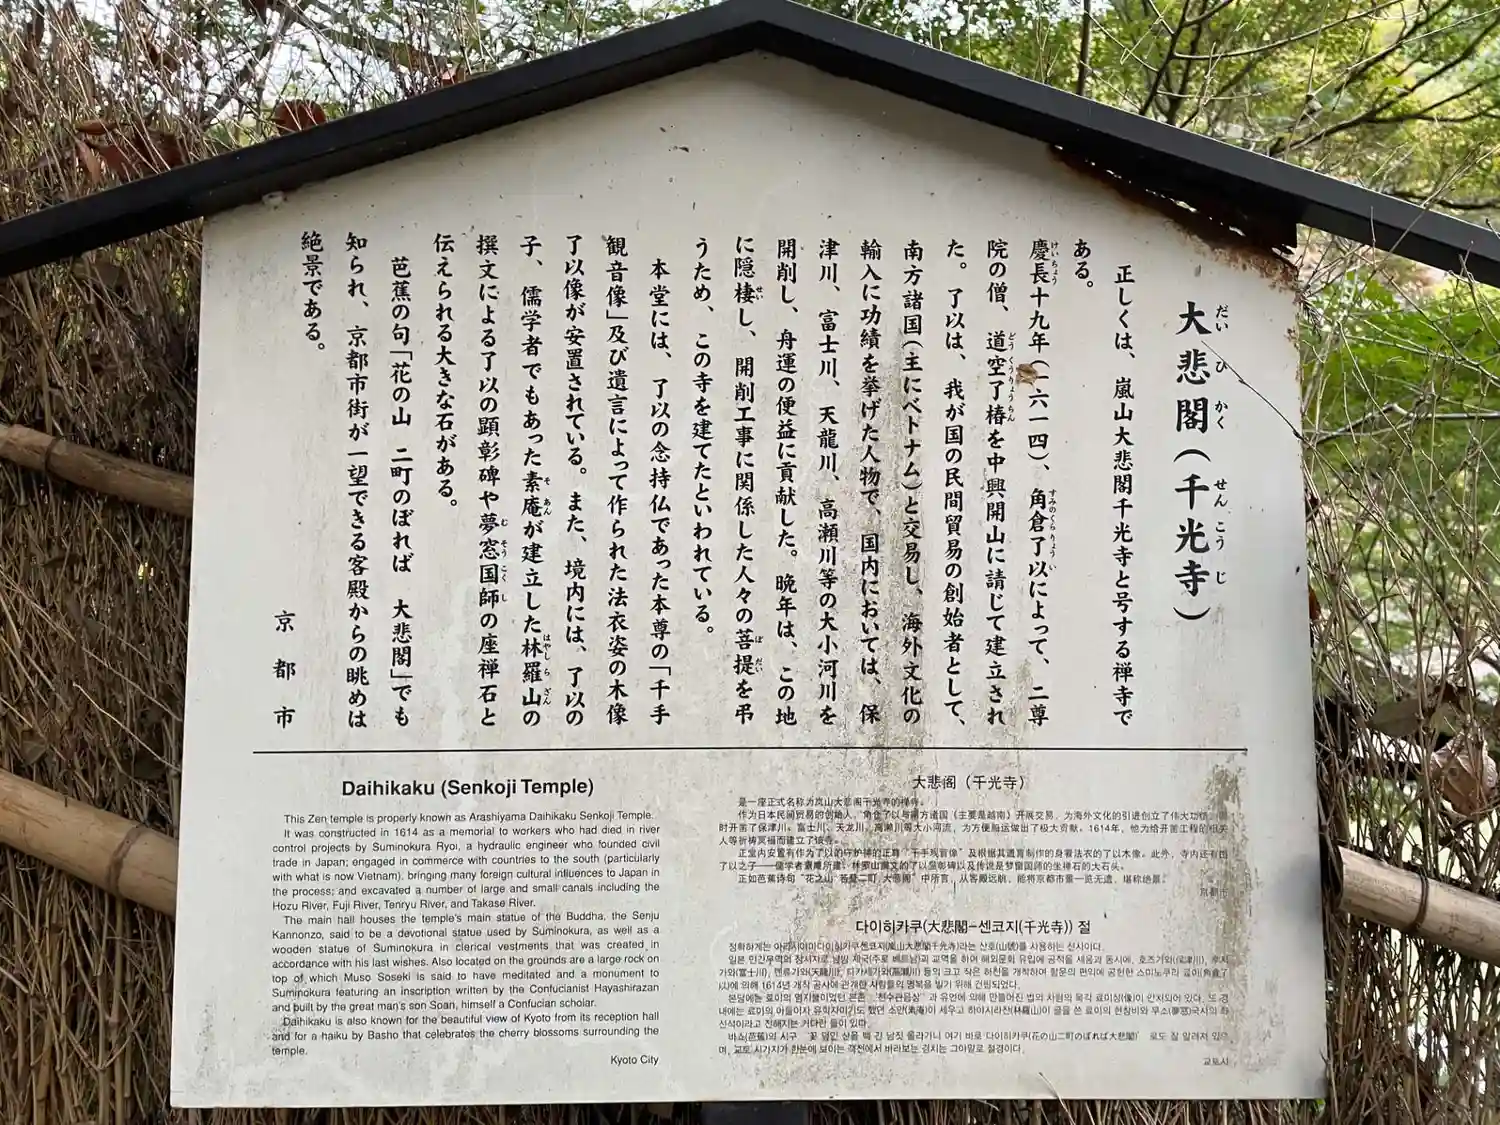 大悲閣(千光寺)
だい ひ かく せん こう じ
正しくは、嵐山大悲閣千光寺と号する禅寺で
ある。
慶長十九年(一六一四)、角倉了以によって、二尊
けいちょう すみのくらりょうい
院の僧、道空了椿を中興開山に請じて建立され
どうくうりょうちん
た。了以は、我が国の民間貿易の創始者として、
南方諸国(主にベトナム)と交易し、海外文化の
輸入に功績を挙げた人物で、国内においては、保
津川、富士川、天龍川、高瀬川等の大小河川を
開削し、舟運の便益に貢献した。晩年は、この地
に隠棲し、開削工事に関係した人々の菩提を弔
せい ぼ だい
うため、この寺を建てたといわれている。
本堂には、了以の念持仏であった本尊の「千手
観音像」及び遺言によって作られた法衣姿の木像
了以像が安置されている。また、境内には、了以の
子、儒学者でもあった素庵が建立した林羅山の
そ あん はやし ら ざん
撰文による了以の顕彰碑や夢窓国師の座禅石と
む そう こく し
伝えられる大きな石がある。
芭蕉の句「花の山 二町のぼれば 大悲閣」でも
知られ、京都市街が一望できる客殿からの眺めは
絶景である。
京都市
Daihikaku (Senkoji Temple)
This Zen temple is properly known as Arashiyama Daihikaku Senkoji Temple.
It was constructed in 1614 as a memorial to workers who had died in river
control projects by Suminokura Ryoi, a hydraulic engineer who founded civil
trade in Japan; engaged in commerce with countries to the south (particularly
with what is now Vietnam), bringing many foreign cultural influences to Japan in
the process; and excavated a number of large and small canals including the
Hozu River, Fuji River, Tenryu River, and Takase River.
The main hall houses the temple's main statue of the Buddha, the Senju
Kannonzo, said to be a devotional statue used by Suminokura, as well as a
wooden statue of Suminokura in clerical vestments that was created in
accordance with his last wishes. Also located on the grounds are a large rock on
top of which Muso Soseki is said to have meditated and a monument to
Suminokura featuring an inscription written by the Confucianist Hayashirazan
and built by the great man's son Soan, himself a Confucian scholar.
Daihikaku is also known for the beautiful view of Kyoto from its reception hall
and for a haiku by Basho that celebrates the cherry blossoms surrounding the
temple.
Kyoto City
大悲阁(千光寺)
是一座正式名称为岚山大悲阁千光寺的禅寺。
作为日本民间贸易的创始人,角仓了以与南方诸国(主要是越南)开展交易,为海外文化的引进创立了伟大功绩,同
时开凿了保津川、富士川、天龙川、高濑川等大小河流,为方便船运做出了极大贡献。1614年,他为给开凿工程的相关
人等祈祷冥福而建立了该寺。
正堂内安置有作为了以的守护神的正尊“千手观音像”及根据其遗言制作的身着法衣的了以木像。此外,寺内还有由
了以之子——儒学者素庵所建、林罗山撰文的了以显彰碑以及传说是梦窗国师的坐禅石的大石头。
正如芭蕉诗句“花之山 若登二町 大悲阁”中所言,从客殿远眺,能将京都市景一览无遗,堪称绝景。
京都市
다이히카쿠(大悲閣-센코지(千光寺)) 절
정확하게는 아라시야마다이히카쿠센코지(嵐山大悲閣千光寺)라는 산호(山號)를 사용하는 선사이다.
교토시